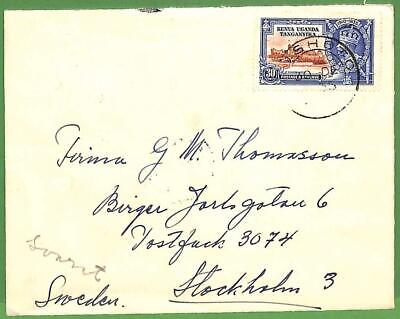 KENYA UGANDA
TANGANYIKA
30
POSTAGE & REVENUE
Firma G M. Thomasson
Birger Jarlsgatan 6
Postfack 3074
Stockholm 3
Sweden.